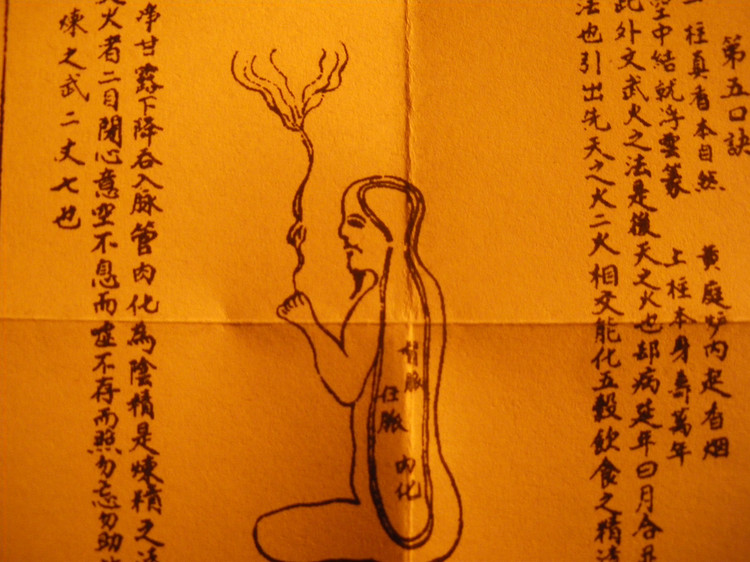 第五口訣
一柱真香本自然 黄庭炉内起香烟
空中結就浮雲篆 上柱本身壽萬年
此外文武火之法是後天之火也却病延年日月合
法也引出先天之火二火相交能化五穀飲食之精
督脈
任脈
肉化
甘露下降吞入脈管肉化為陰精是煉精之法
火者二目閉心意空不息而虚不存而照勿忘勿助
煉之武二丈七也